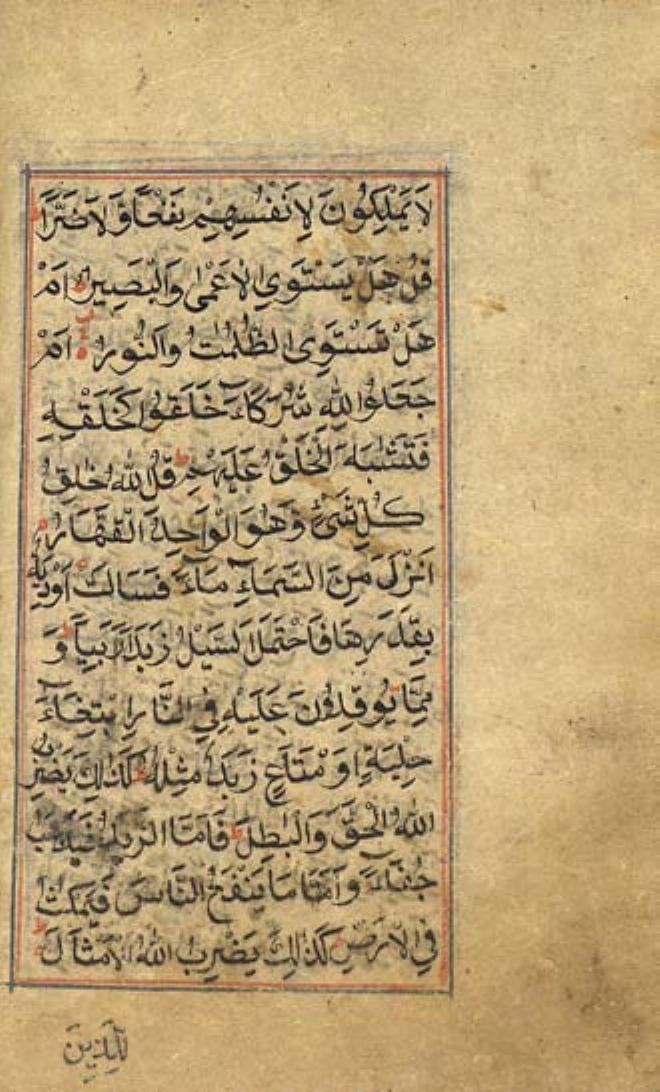 لَا يَمْلِكُونَ لِاَنْفُسِهِمْ نَفْعًا وَّلَا ضَرًّا ط
قُلْ هَلْ يَسْتَوِى الْاَعْمٰى وَالْبَصِيْرُ اَمْ
هَلْ تَسْتَوِى الظُّلُمٰتُ وَالنُّوْرُ اَمْ
جَعَلُوْا لِلّٰهِ شُرَكَآءَ خَلَقُوْا كَخَلْقِهٖ
فَتَشَابَهَ الْخَلْقُ عَلَيْهِمْ ط قُلِ اللّٰهُ خَالِقُ
كُلِّ شَىْءٍ وَّهُوَ الْوَاحِدُ الْقَهَّارُ
اَنْزَلَ مِنَ السَّمَآءِ مَآءً فَسَالَتْ اَوْدِيَةٌ
بِقَدَرِهَا فَاحْتَمَلَ السَّيْلُ زَبَدًا رَّابِيًا ط وَ
مِمَّا يُوْقِدُوْنَ عَلَيْهِ فِى النَّارِ ابْتِغَآءَ
حِلْيَةٍ اَوْ مَتَاعٍ زَبَدٌ مِّثْلُهٗ ط كَذٰلِكَ يَضْرِبُ
اللّٰهُ الْحَقَّ وَالْبَاطِلَ ط فَاَمَّا الزَّبَدُ فَيَذْهَبُ
جُفَآءً وَاَمَّا مَا يَنْفَعُ النَّاسَ فَيَمْكُثُ
فِى الْاَرْضِ ط كَذٰلِكَ يَضْرِبُ اللّٰهُ الْاَمْثَالَ ط
لِلَّذِيْنَ